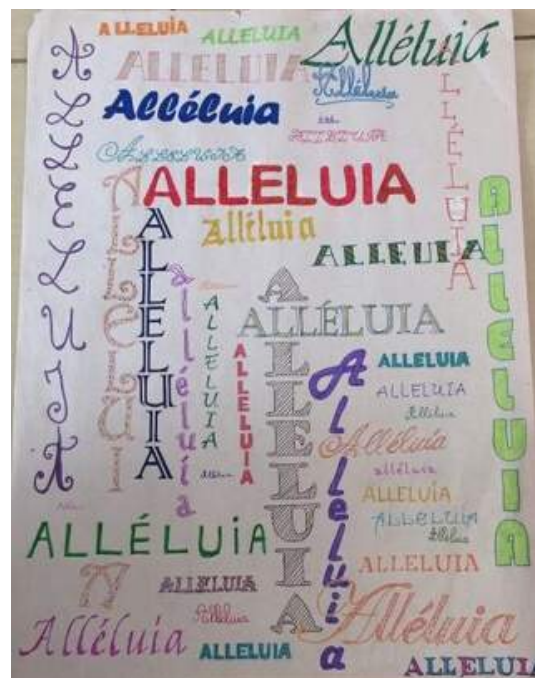 ALLELUIA
ALLELUIA
Alléluia
ALLELUIA
Alléluia
Alléluia
ALLELUIA
ALLELUIA
ALLELUIA
ALLELUIA
ALLÉLUIA
ALLELUIA
Alléluia
ALLELUIA
ALLELUIA
ALLELUIA
ALLELUIA
alléluia
ALLELUIA
ALLÉLUIA
ALLELUIA
ALLELUIA
Alleluia
ALLELUIA
ALLELUIA
Alléluia
Alléluia
alléluia
ALLELUIA
ALLELUIA
Alléluia
ALLÉLUiA
ALLELUIA
ALLELUIA
Alléluia
Alléluia
Alléluia
ALLELUIA
ALLELUIA